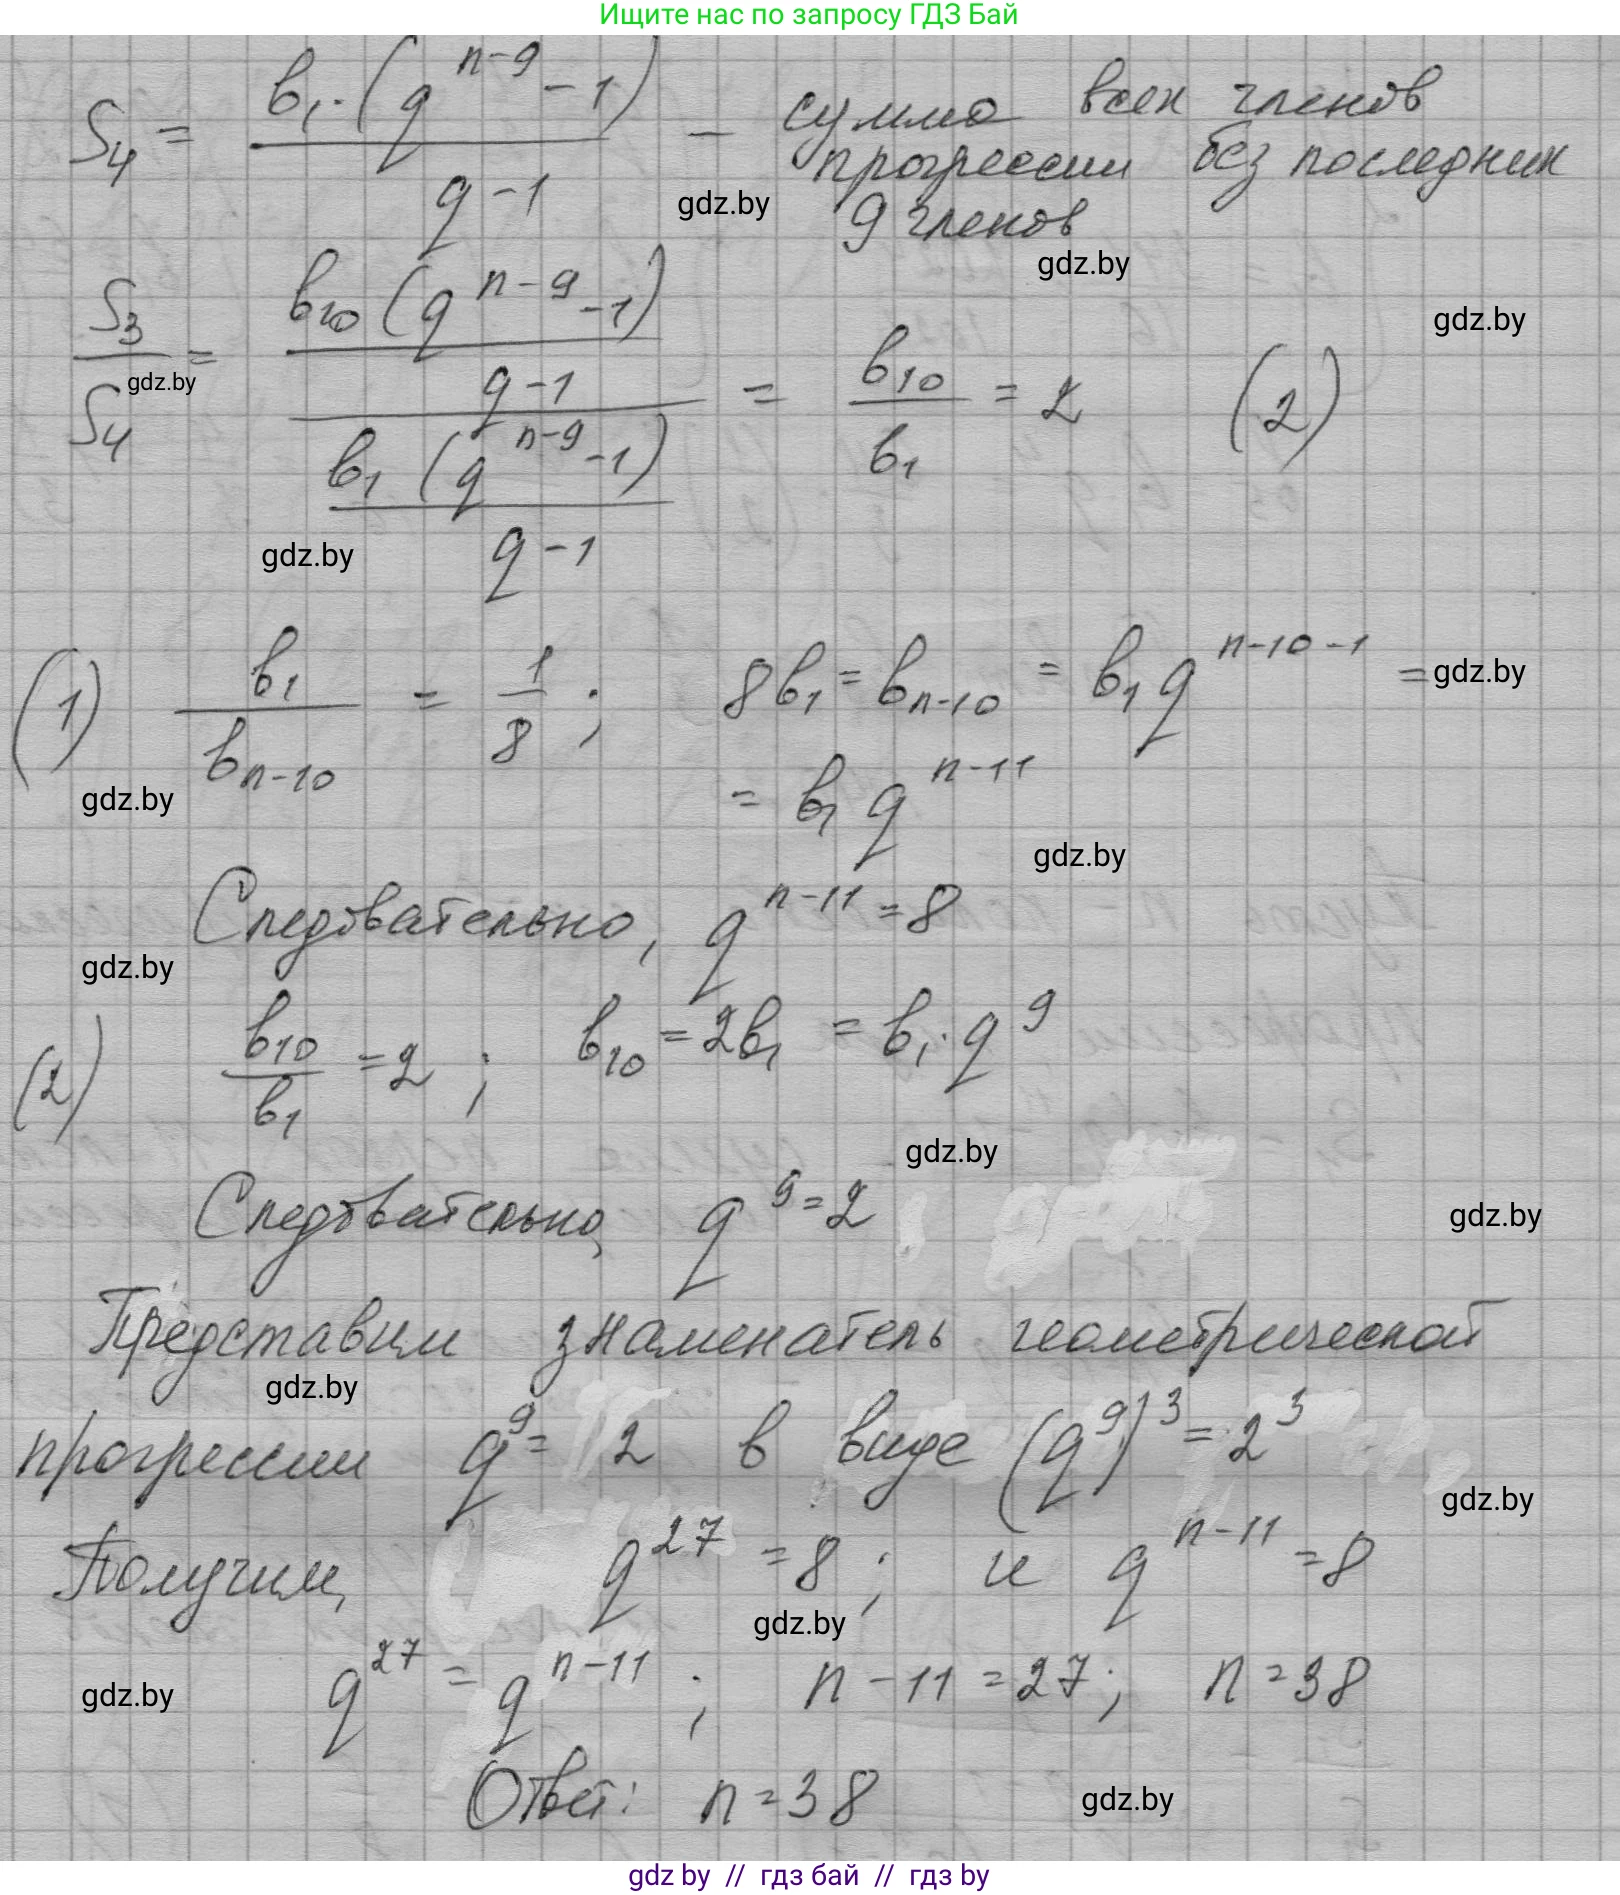 Ищите нас по запросу ГДЗ Бай
S₄ = в₁·(q^(n-9) - 1) / (q - 1) — сумма всех членов
прогрессии без последних
9 членов
gdz.by
gdz.by
gdz.by
S₃/S₄ = (в₁₀(q^(n-9) - 1)/(q - 1)) / (в₁(q^(n-9) - 1)/(q - 1)) = в₁₀/в₁ = 2 (2)
gdz.by
gdz.by
(1) в₁/вₙ₋₁₀ = 1/8 ; 8в₁ = вₙ₋₁₀ = в₁q^(n-10-1) =
gdz.by
= в₁q^(n-11)
gdz.by
gdz.by
Следовательно, q^(n-11) = 8
gdz.by
(2) в₁₀/в₁ = 2 ; в₁₀ = 2в₁ = в₁·q^9
gdz.by
Следовательно, q^9 = 2
gdz.by
Представим знаменатель геометрической
gdz.by
прогрессии q^9 = 2 в виде (q^9)^3 = 2^3
gdz.by
Получим, q^27 = 8 ; и q^(n-11) = 8
gdz.by
q^27 = q^(n-11) ; n - 11 = 27; n = 38
gdz.by
Ответ: n = 38
gdz.by
gdz by // гдз бай // гдз by